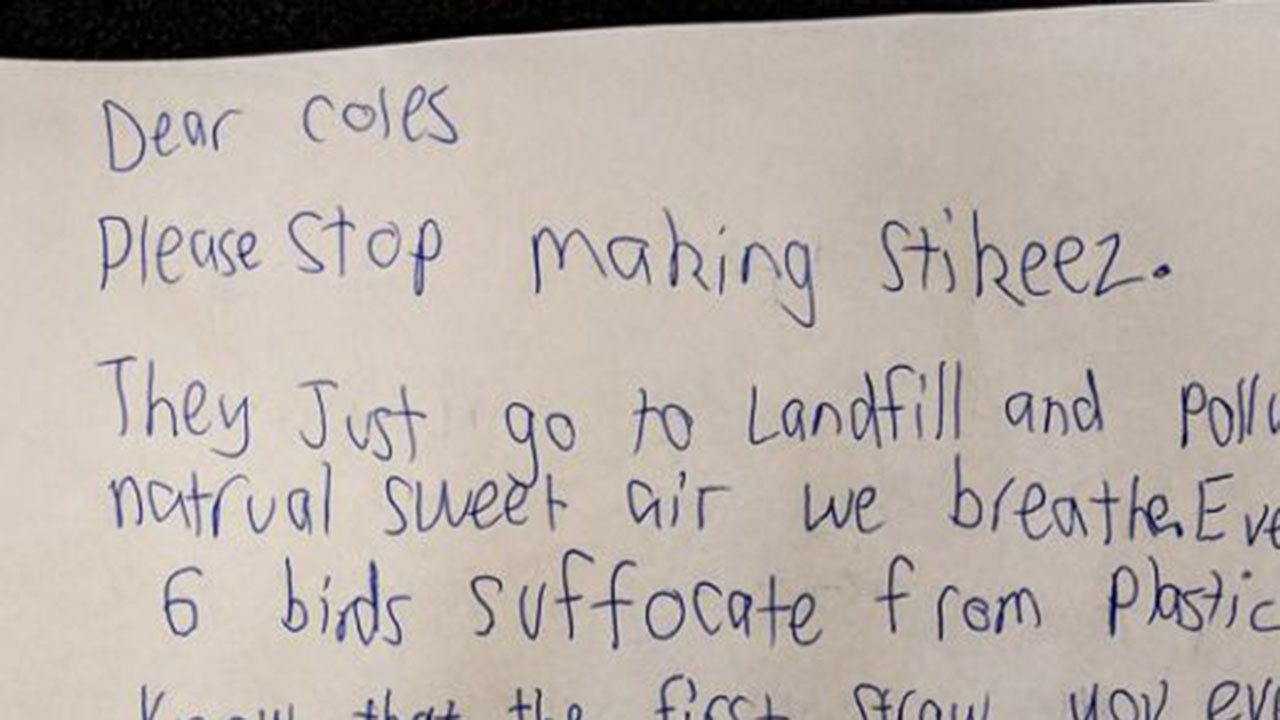 Dear coles
Please Stop making Stikeez.
They Just go to Landfill and Pollu
natrual sweet air we breathe. Eve
6 birds suffocate from Plastic
Know that the first straw you eve